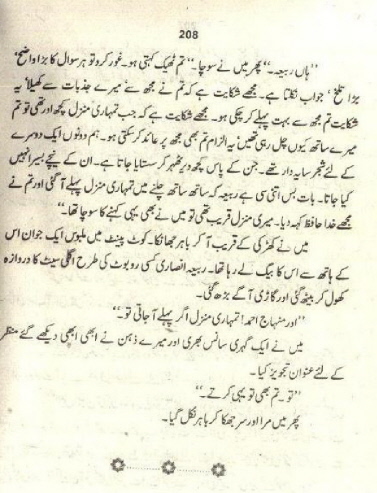 208
”ہاں ربیعہ۔“ پھر میں نے سوچا۔ ”تم ٹھیک کہتی ہو۔ غور کرو تو ہر سوال کا بڑا واضح‘
بڑا تلخ‘ جواب نکلتا ہے۔ مجھے شکایت ہے کہ تم نے مجھ سے میرے جذبات سے کھیلا‘ یہ
شکایت تم مجھ سے بہت پہلے کر چکی ہو۔ مجھے شکایت ہے کہ جب تمہاری منزل کچھ اور تھی تو تم
میرے ساتھ کیوں چل رہی تھیں‘ یہ الزام تم بھی مجھ پر عائد کر سکتی ہو۔ ہم دونوں ایک دوسرے
کے لئے شجر سایہ دار تھے۔ جن کے پاس کچھ دیر ٹھہر کر سستایا جاتا ہے۔ ان کے نیچے بسیرا نہیں
کیا جاتا۔ بات بس اتنی سی ہے ربیعہ کہ ساتھ ساتھ چلنے میں تمہاری منزل پہلے آ گئی اور تم نے
مجھے خدا حافظ کہہ دیا۔ میری منزل قریب تھی تو میں نے بھی یہی کہنے کا سوچا تھا۔“
میں نے کھڑکی کے قریب آ کر باہر جھانکا۔ کوٹ پینٹ میں ملبوس ایک جوان اس
کے ہاتھ سے اس کا بیگ لے رہا تھا۔ ربیعہ انصاری کسی روبوٹ کی طرح اگلی سیٹ کا دروازہ
کھول کر بیٹھ گئی اور گاڑی آگے بڑھ گئی۔
”اور منہاج احمد! تمہاری منزل اگر پہلے آ جاتی تو۔“
میں نے ایک گہری سانس بھری اور میرے ذہن نے ابھی ابھی دیکھے گئے منظر
کے لئے عنوان تجویز کیا۔
”تو۔ تم بھی تو یہی کرتے۔“
پھر میں مڑا اور سر جھکا کر باہر نکل گیا۔